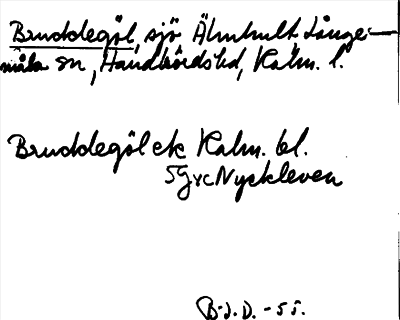 Bruddegöl, sjö Älmhult Långe-
måla sn, Handbördshd, Kalm. l.
Bruddegöl ek Kalm. bl.
5g vc Nyckleven
B.J.D. -55.